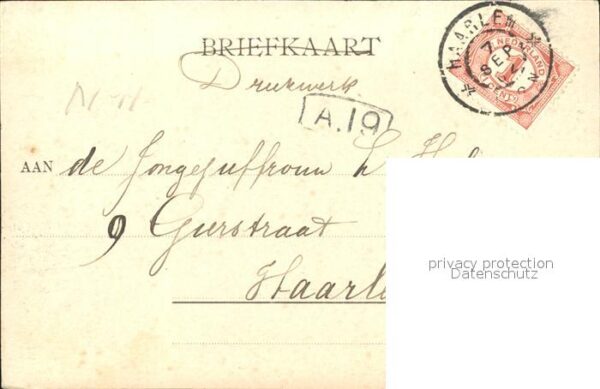 BRIEFKAART
Drukwerk
HAARLEM
7 SEP
NEDERLAND
1
CENT
A.19
AAN de Jongejuffrouw L H
9 Gierstraat
Haarl
privacy protection
Datenschutz